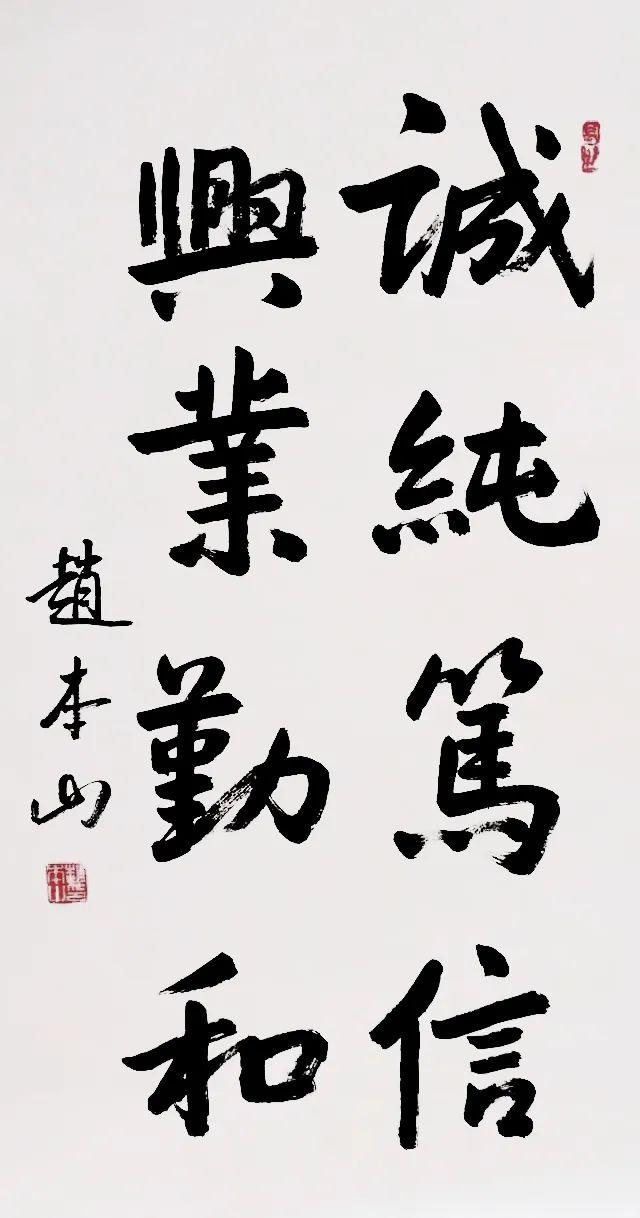 誠純篤信
興業勤和
趙本山